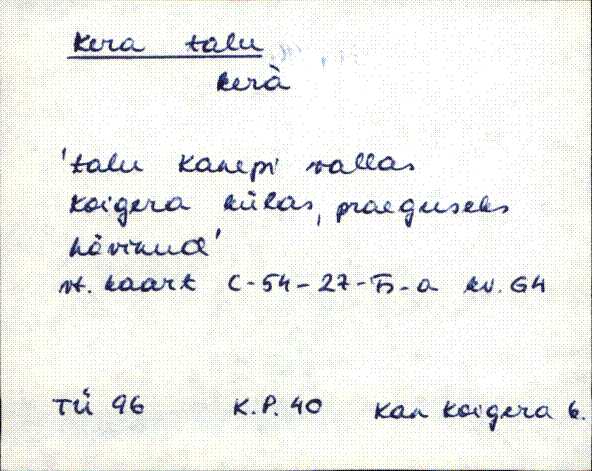 Kera talu
kerà
'talu Kanepi vallas
Koigera külas, praeguseks
hävinud'
vt. kaart C-54-27-Б-а kv. G4
TÜ 96 K.P. 40 Kan Koigera k.